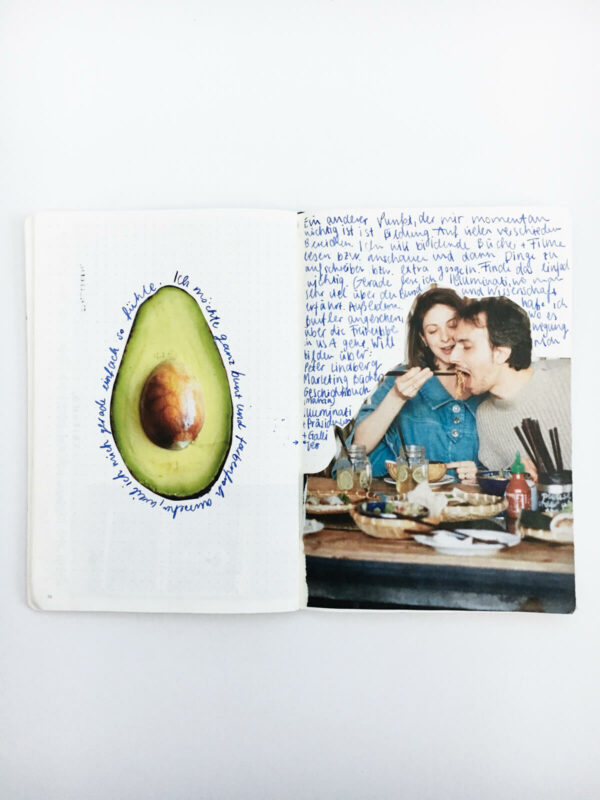 Ich möchte ganz bunt und farbenfroh aussehen, weil ich mich gerade einfach so fühle.
Ein anderer Punkt, der mir momentan
wichtig ist ist Bildung. Auf vielen verschieden
Bereichen. Ich will bildende Bücher + Filme
lesen bzw. anschauen und dann Dinge zu
aufschreiben bzw. extra googeln. Finde das einfach
wichtig. Gerade lese ich Illuminati, wo man
sehr viel über die Kunst und Wissenschaft
erfährt. Außerdem habe ich
Butler angesehen, wo es
über die
in USA geht. Will mich
bilden über:
Peter Lindberg
Marketing Bücher
Geschichtsbuch
(Mama)
Illuminati
+ Galli